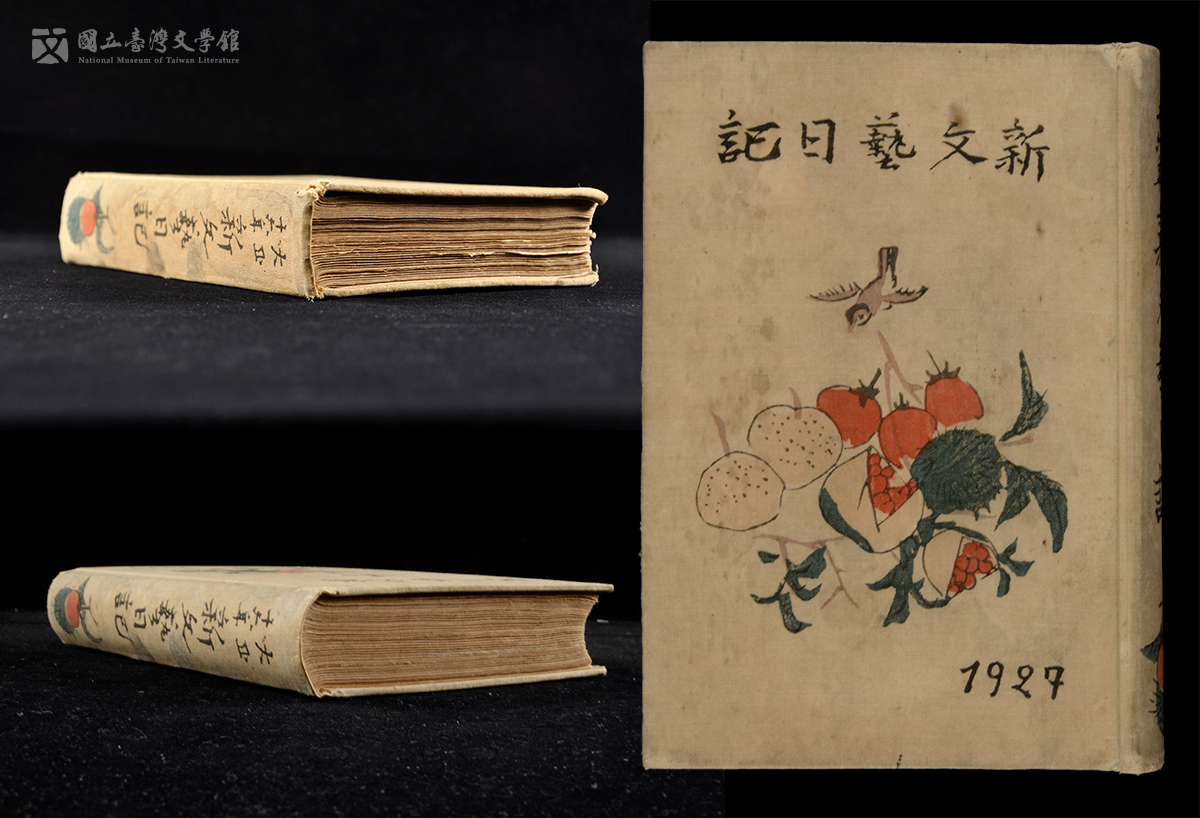 國立臺灣文學館
National Museum of Taiwan Literature
大正十六年
新文藝日記
新文藝日記
1927
大正十六年
新文藝日記